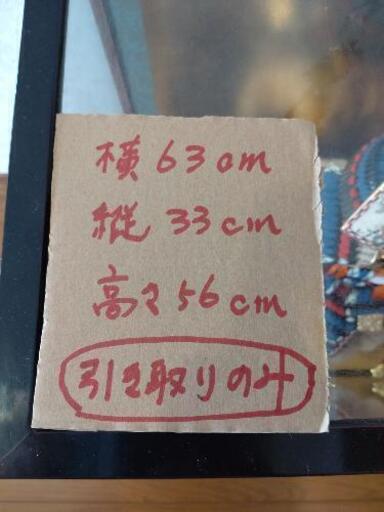 横 63cm
縦 33cm
高さ 56cm
引き取りのみ